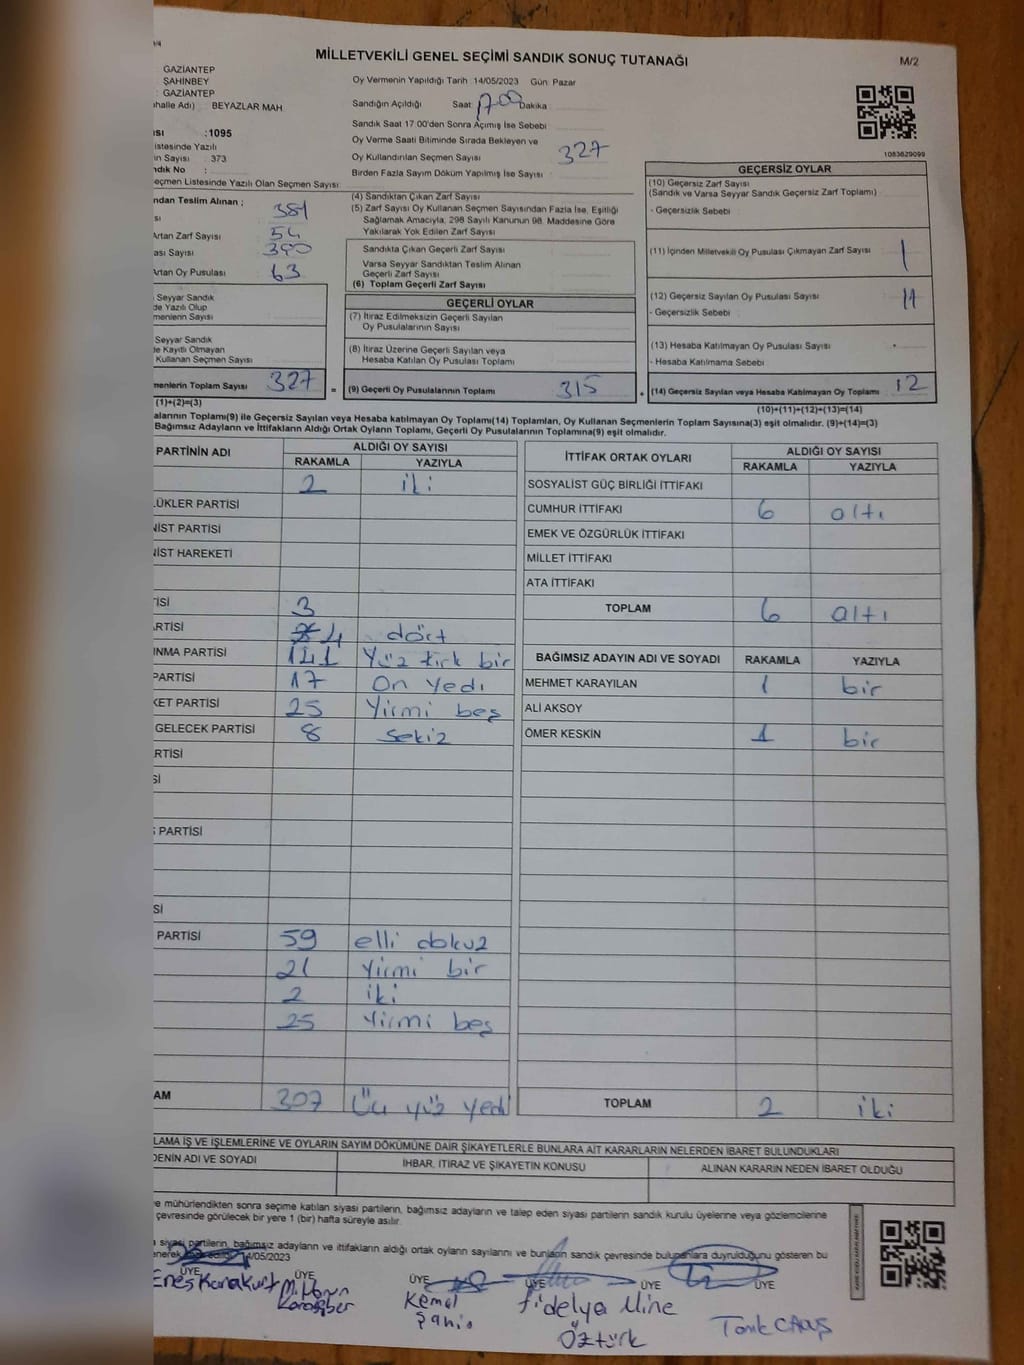 MİLLETVEKİLİ GENEL SEÇİMİ SANDIK SONUÇ TUTANAĞI
M/2
GAZİANTEP
ŞAHİNBEY
: GAZİANTEP
halle Adı) : BEYAZLAR MAH
ISI :1095
istesinde Yazılı
in Sayısı : 373
ndık No :
eçmen Listesinde Yazılı Olan Seçmen Sayısı
Oy Vermenin Yapıldığı Tarih :14/05/2023 Gün: Pazar
Sandığın Açıldığı Saat: 17 00 Dakika
Sandık Saat 17:00'den Sonra Açımış İse Sebebi
Oy Verme Saati Bitiminde Sırada Bekleyen ve
Oy Kullandırılan Seçmen Sayısı 327
Birden Fazla Sayım Döküm Yapılmış İse Sayısı
1083629099
ndan Teslim Alınan ;
sı 381
Artan Zarf Sayısı 54
ası Sayısı 390
Artan Oy Pusulası 63
Seyyar Sandık
de Yazılı Olup
menlerin Sayısı
Seyyar Sandık
de Kayıtlı Olmayan
Kullanan Seçmen Sayısı
menlerin Toplam Sayısı 327
(1)+(2)=(3)
(4) Sandıktan Çıkan Zarf Sayısı
(5) Zarf Sayısı Oy Kullanan Seçmen Sayısından Fazla İse, Eşitliği
Sağlamak Amacıyla, 298 Sayılı Kanunun 98. Maddesine Göre
Yakılarak Yok Edilen Zarf Sayısı
Sandıkta Çıkan Geçerli Zarf Sayısı
Varsa Seyyar Sandıktan Teslim Alınan
Geçerli Zarf Sayısı
(6) Toplam Geçerli Zarf Sayısı
GEÇERLİ OYLAR
(7) İtiraz Edilmeksizin Geçerli Sayılan
Oy Pusulalarının Sayısı
(8) İtiraz Üzerine Geçerli Sayılan veya
Hesaba Katılan Oy Pusulası Toplamı
= (9) Geçerli Oy Pusulalarının Toplamı 315
GEÇERSİZ OYLAR
(10) Geçersiz Zarf Sayısı
(Sandık ve Varsa Seyyar Sandık Geçersiz Zarf Toplamı)
- Geçersizlik Sebebi
(11) İçinden Milletvekili Oy Pusulası Çıkmayan Zarf Sayısı 1
(12) Geçersiz Sayılan Oy Pusulası Sayısı 11
- Geçersizlik Sebebi
(13) Hesaba Katılmayan Oy Pusulası Sayısı
- Hesaba Katılmama Sebebi
+ (14) Geçersiz Sayılan veya Hesaba Katılmayan Oy Toplamı 12
(10)+(11)+(12)+(13)=(14)
alarının Toplamı(9) ile Geçersiz Sayılan veya Hesaba katılmayan Oy Toplamı(14) Toplamları, Oy Kullanan Seçmenlerin Toplam Sayısına(3) eşit olmalıdır. (9)+(14)=(3)
Bağımsız Adayların ve İttifakların Aldığı Ortak Oyların Toplamı, Geçerli Oy Pusulalarının Toplamına(9) eşit olmalıdır.
PARTİNİN ADI ALDIĞI OY SAYISI
RAKAMLA YAZIYLA
2 iki
LÜKLER PARTİSİ
NİST PARTİSİ
NİST HAREKETİ
TİSİ 3
ARTİSİ 4 dört
INMA PARTİSİ 141 Yüz kırk bir
PARTİSİ 17 On yedi
KET PARTİSİ 25 Yirmi beş
GELECEK PARTİSİ 8 sekiz
RTİSİ
Sİ
Ş PARTİSİ
Sİ
PARTİSİ 59 elli dokuz
21 Yirmi bir
2 iki
25 Yirmi beş
AM 307 Üç yüz yedi
İTTİFAK ORTAK OYLARI ALDIĞI OY SAYISI
RAKAMLA YAZIYLA
SOSYALİST GÜÇ BİRLİĞİ İTTİFAKI
CUMHUR İTTİFAKI 6 altı
EMEK VE ÖZGÜRLÜK İTTİFAKI
MİLLET İTTİFAKI
ATA İTTİFAKI
TOPLAM 6 altı
BAĞIMSIZ ADAYIN ADI VE SOYADI RAKAMLA YAZIYLA
MEHMET KARAYILAN 1 bir
ALİ AKSOY
ÖMER KESKİN 1 bir
TOPLAM 2 iki
LAMA İŞ VE İŞLEMLERİNE VE OYLARIN SAYIM DÖKÜMÜNE DAİR ŞİKAYETLERLE BUNLARA AİT KARARLARIN NELERDEN İBARET BULUNDUKLARI
DENİN ADI VE SOYADI İHBAR, İTİRAZ VE ŞİKAYETİN KONUSU ALINAN KARARIN NEDEN İBARET OLDUĞU
e mühürlendikten sonra seçime katılan siyasi partilerin, bağımsız adayların ve talep eden siyasi partilerin sandık kurulu üyelerine veya gözlemcilerine
çevresinde görülecek bir yere 1 (bir) hafta süreyle asılır.
siyasi partilerin, bağımsız adayların ve ittifakların aldığı ortak oyların sayılarını ve bunların sandık çevresinde bulunanlara duyrulduğunu gösteren bu
enerek 14/05/2023
ÜYE ÜYE ÜYE ÜYE ÜYE ÜYE
Enes Karakurt
Kemal
Şahin
Fidelya Mine
Öztürk